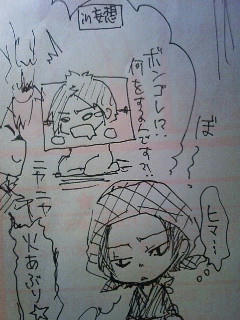 in妄想
ボンゴレ!?
何をするんですか?!
ぼ
ニヤニヤ
火あぶり☆
ヒマ…